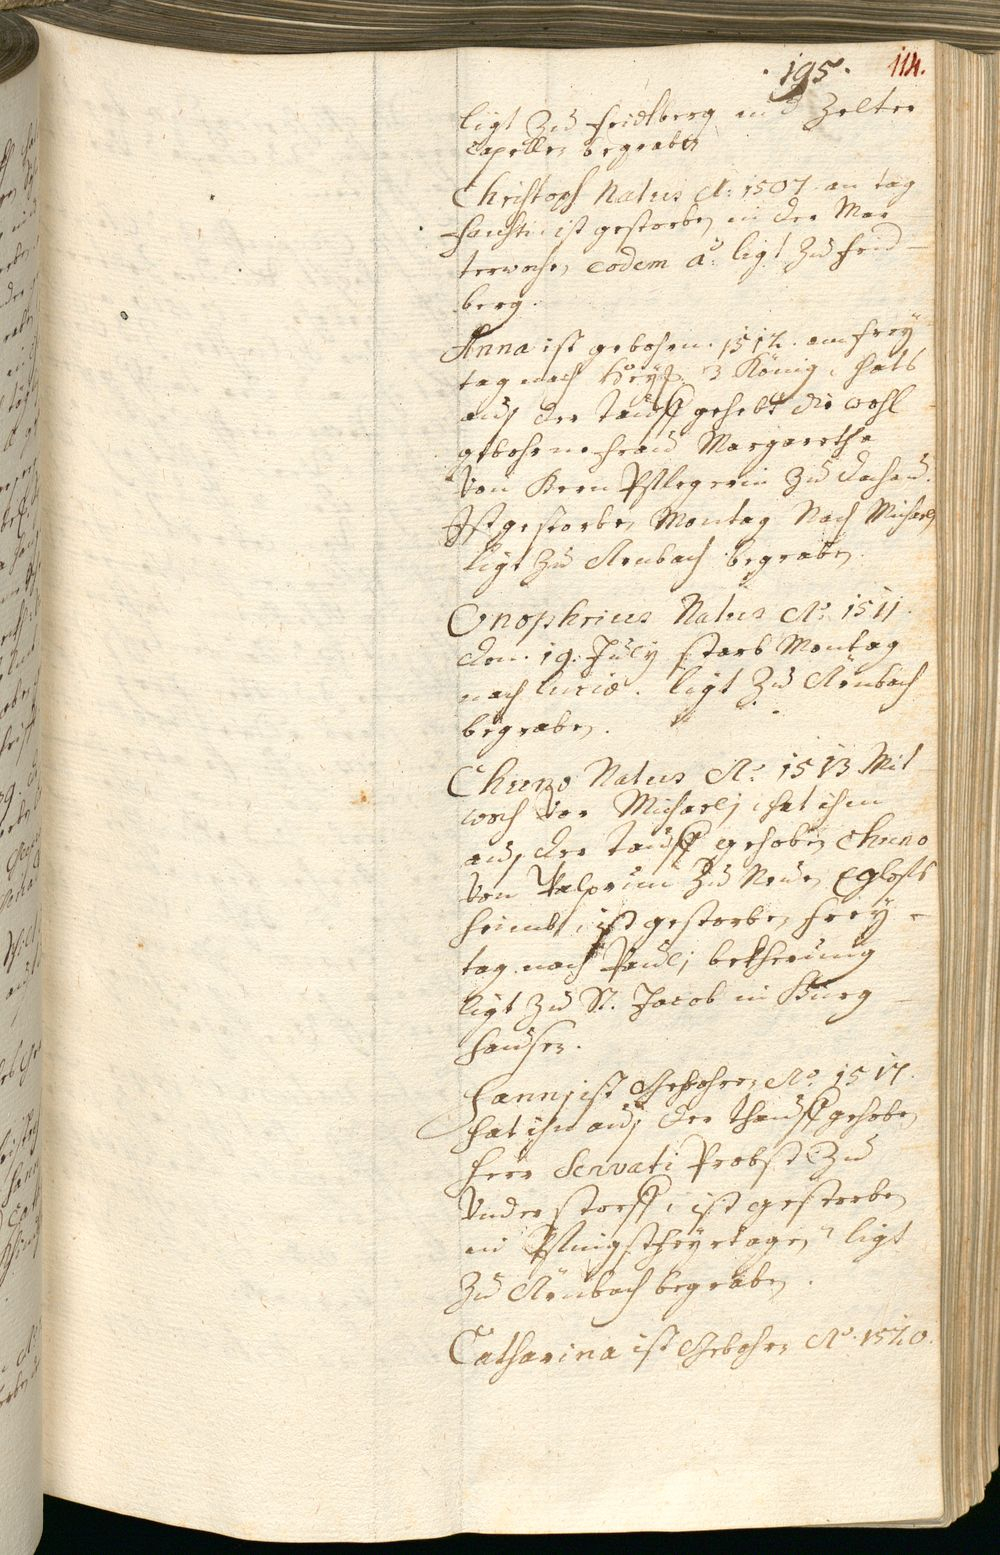 . 195. 114.
ligt Zu Fridtberg in d Zelter
Capellen begraben
Christoph Natus Aõ: 1507 an tag
Faustin ist gestorben in der Mar
terwochen eodem aõ. ligt Zu Frid-
berg.
Anna ist gebohrn. 1512. am Frey
tag nach Heyl: 3 König, hats
aus der Tauff gehebt die wohl
gebohrne Frau Margaretha
Von Kern Pflegerin Zu Dachau.
Ist gestorben Montag Nach Michaelj
ligt Zu Arnbach begraben.
Onophrius Natus Aõ 1511.
den. 19. July starb Montag
nach Luciæ. ligt Zu Arnbach
begraben.
Chuno Natus Aõ. 1513 Mit
woch Vor Michaelj, hat ihn
aus der Tauff gehoben Chuno
Von Zu Neuen Eglofs
heimb, ist gestorben Frey-
tag nach Paulj bekherung
ligt Zu St. Jacob in Burg-
hausen.
Hanns ist Gebohren Aõ 1517.
hat ihn aus der Thauff gehoben
Herr Servati Probst Zu
Understorff, ist gestorben
in Pfingstfeyrtagen ligt
Zu Arnbach begraben.
Catharina ist Gebohrn Aõ. 1520.